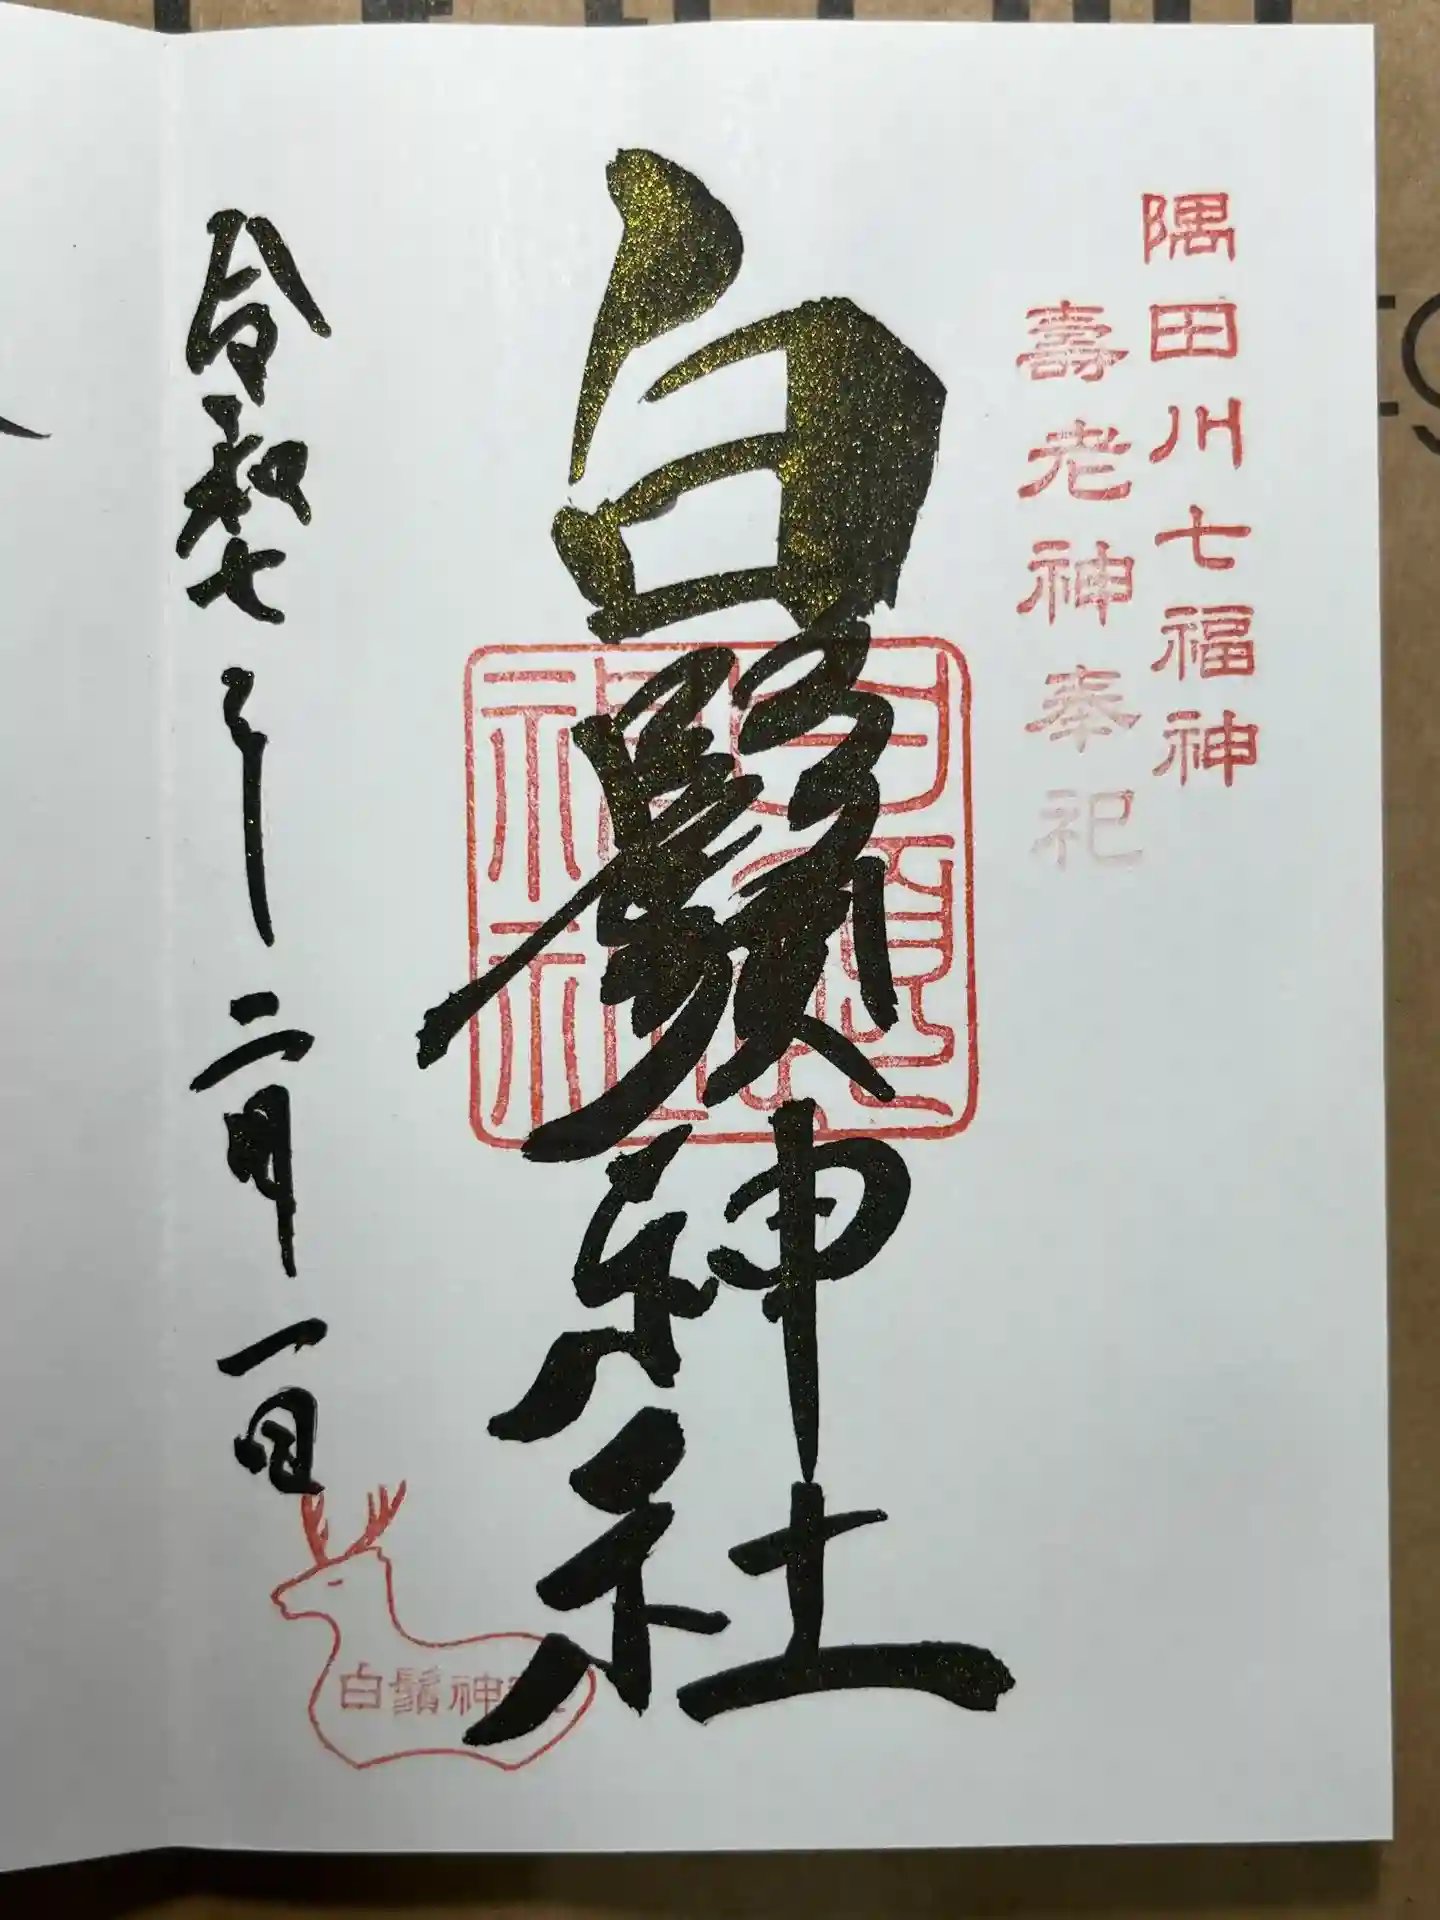 隅田川七福神
壽老神奉祀
白鬚神社
白鬚神社
令和七年二月一日
白鬚神